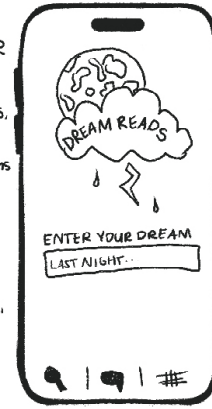 DREAM READS
ENTER YOUR DREAM
LAST NIGHT..